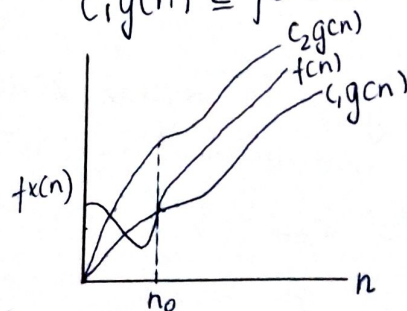 c₁g(n) ≤
c₂g(n)
f(n)
c₁g(n)
fx(n)
n₀
n